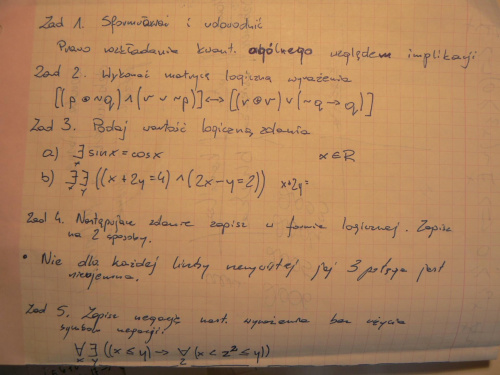 Zad 1. Sformułować i udowodnić
Prawo rozkładania kwant. ogólnego względem implikacji
Zad 2. Wykonać matrycę logiczną wyrażenia
[(p ⊕ ~q) ∧ (r ∨ ~p)] ↔ [(r ⊕ r) ∨ (~q → q)]
Zad 3. Podaj wartość logiczną zdania
a) ∃x sinx = cosx x ∈ R
b) ∃x ∃y ((x+2y=4) ∧ (2x-y=2)) x+2y=
Zad 4. Następujące zdanie zapisz w formie logicznej. Zapisz
na 2 sposoby.
• Nie dla każdej liczby rzeczywistej jej 3 potęga jest
nieujemna.
Zad 5. Zapisz negację nast. wyrażenia bez użycia
symbolu negacji:
∀x ∃y ((x ≤ y) → ∀z (x < z² ≤ y))